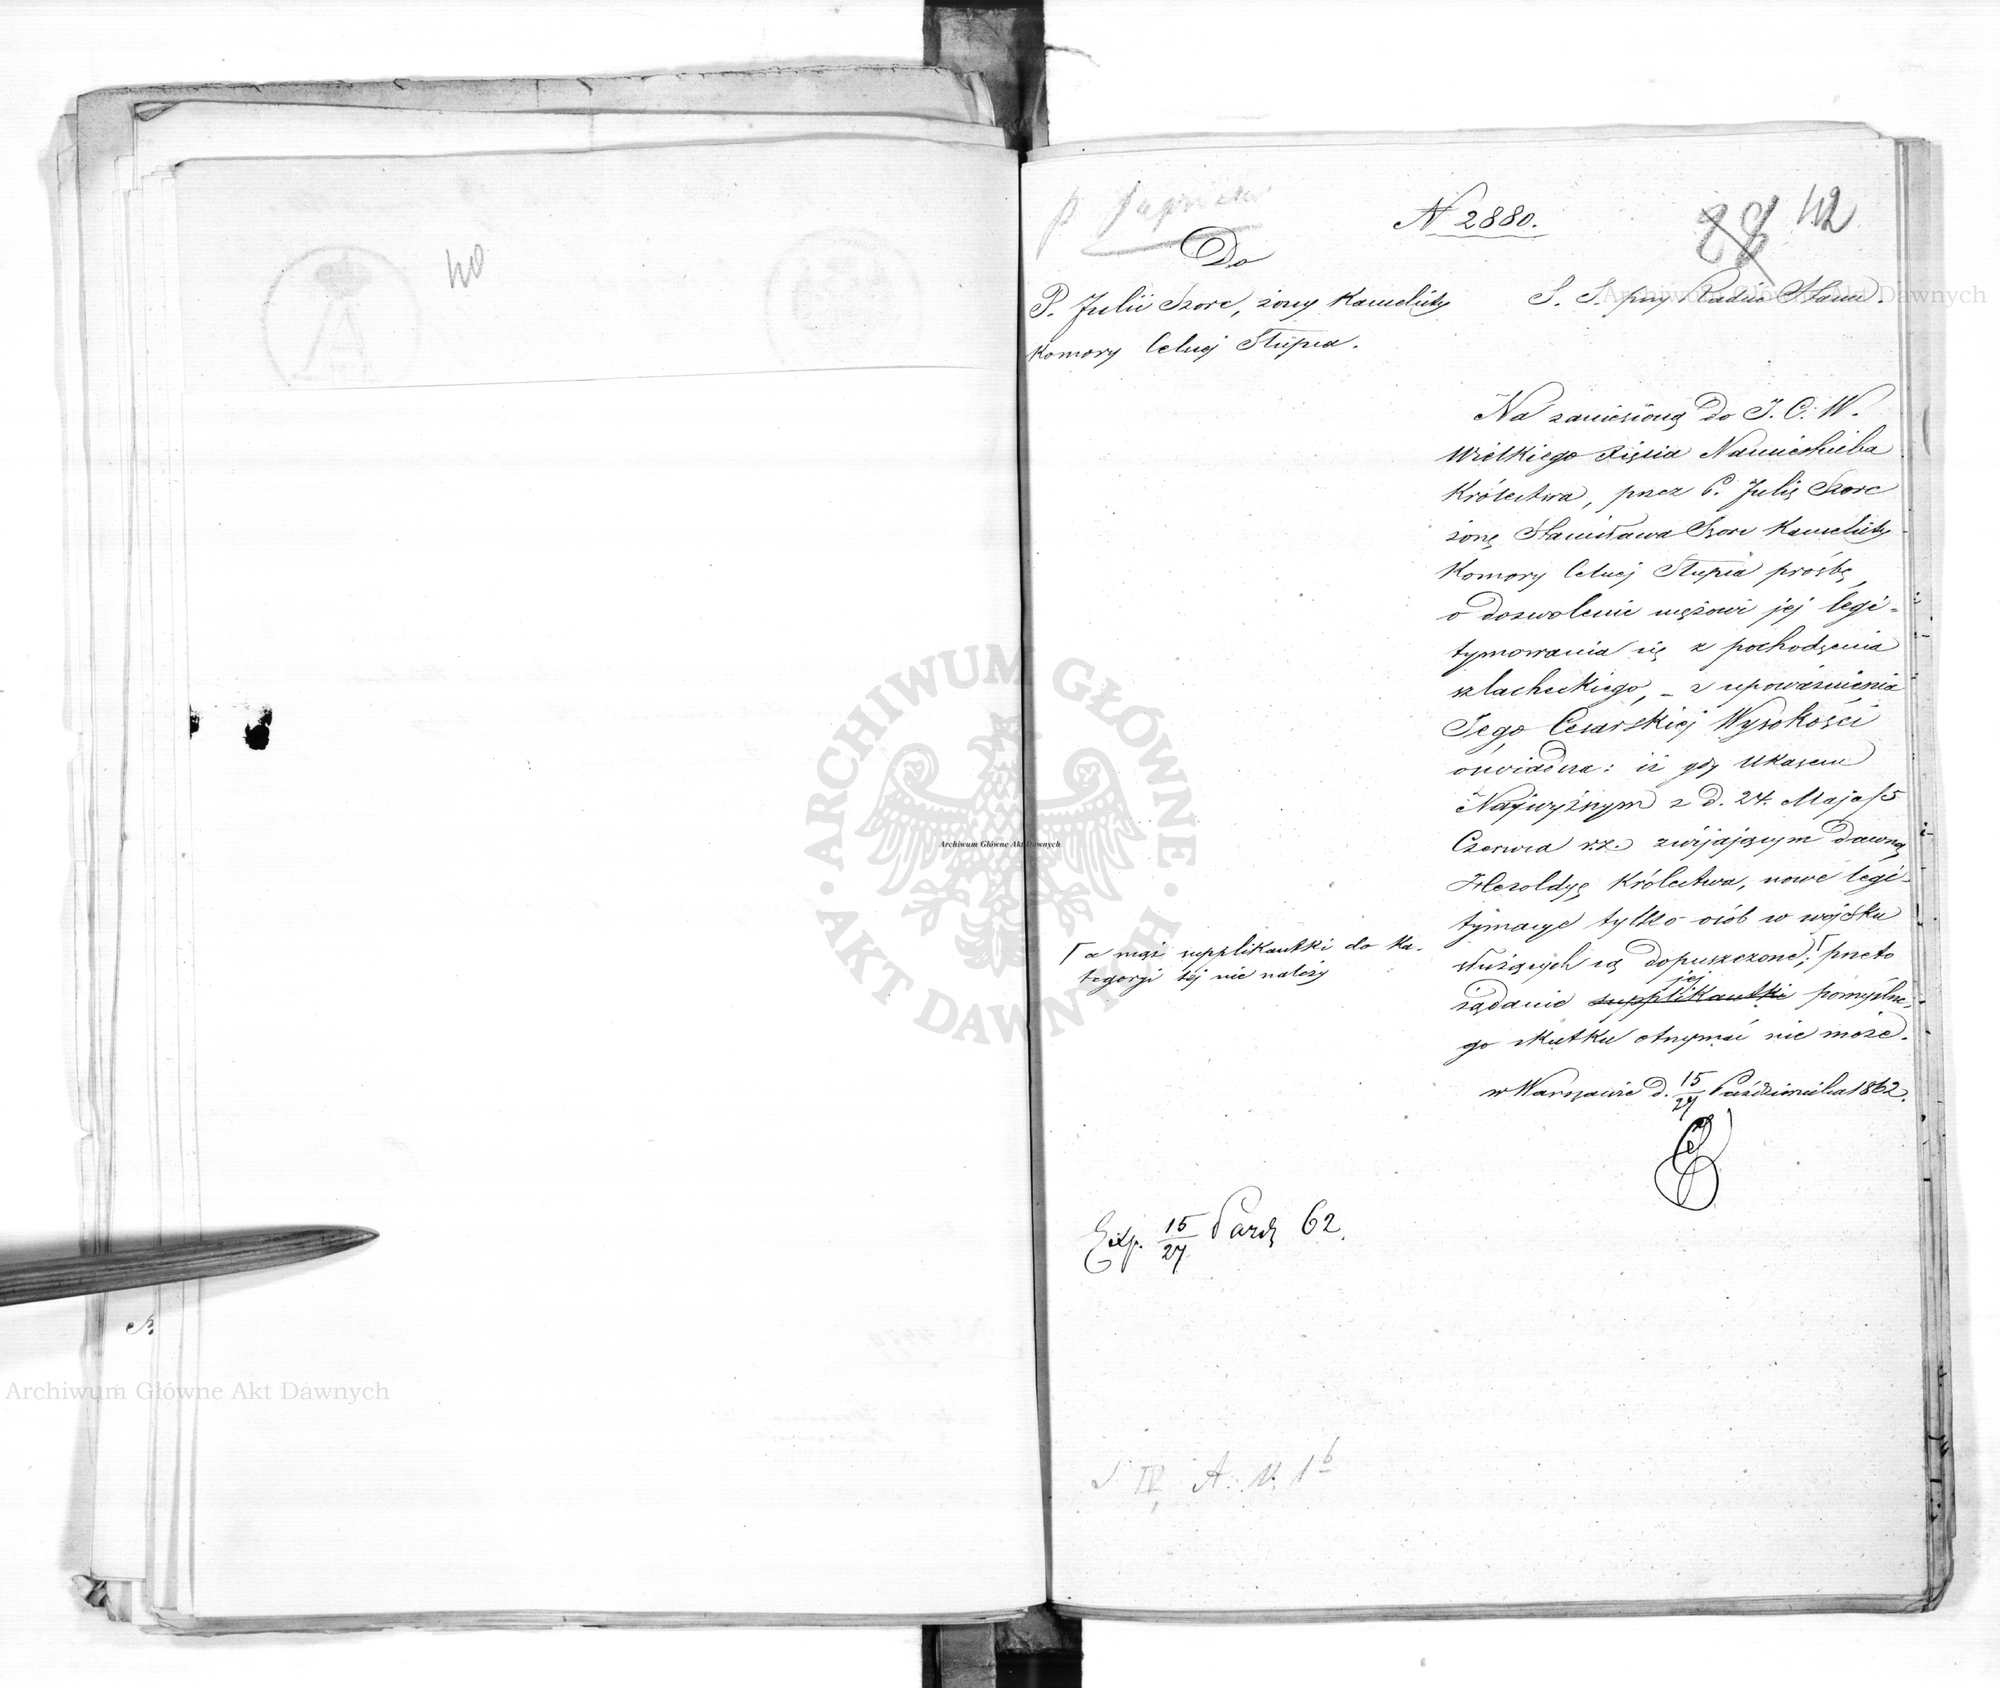 40
N 2880.
28 42
Do
P. Julii Szorc, żony Kancelisty
Komory Celnej Słupca.
S. S. przy Radzie Stanu.
Na zaniesioną do J. C. W.
Wielkiego Xięcia Namiestnika
Królestwa, przez P. Julię Szorc
żonę Stanisława Szorc Kancelisty
Komory Celnej Słupca prośbę
o dozwolenie mężowi jej legi-
tymowania się z pochodzenia
szlacheckiego, – z upoważnienia
Jego Cesarskiej Wysokości
oświadcza: iż gdy Ukazem
Najwyższym z d. 24. Maja/5
Czerwca r.z. zwijającym dawną
Heroldyę Królestwa, nowe legi-
tymacye tylko osób w wojsku
służących są dopuszczone; przeto
Γ a mąż supplikantki do ka-
tegoryi tej nie należy
jej
żądanie supplikantki pomyślne-
go skutku otrzymać nie może.
w Warszawie d. 15/27 Października 1862.
Exp. 15/27 Paźdz 62.
IV A. N. 1b
Archiwum Główne Akt Dawnych
Archiwum Główne Akt Dawnych
Archiwum Główne Akt Dawnych
ARCHIWUM GŁÓWNE AKT DAWNYCH